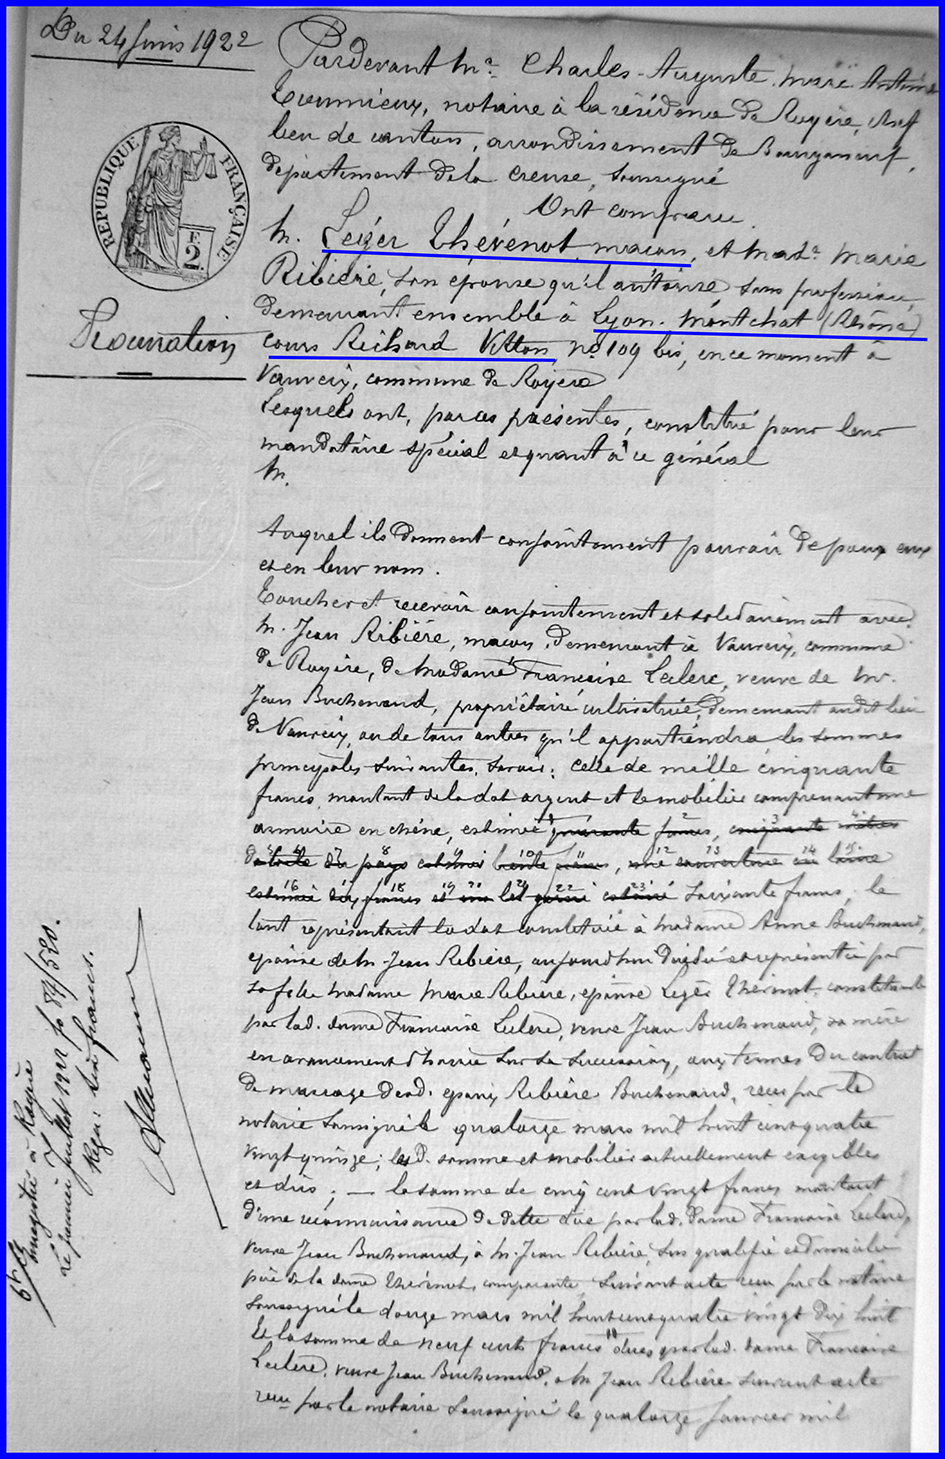 Du 24 Juin 1922
RÉPUBLIQUE FRANÇAISE
F.
2.
Procuration
Pardevant Me Charles-Auguste Marie Antoine
notaire à la résidence de Royère, chef
lieu de canton, arrondissement de Bourganeuf,
département de la Creuse, soussigné
Ont comparu
M. Léger Thévenot maçon, et Made Marie
Ribière, son épouse qu'il autorise sans profession,
demeurant ensemble à Lyon. Montchat (Rhône)
cours Richard Vitton no 109 bis, en ce moment à
Vauveix, commune de Royère
Lesquels ont, par ces présentes, constitué pour leur
mandataire spécial et quant à ce général
M.
Auquel ils donnent conjointement pouvoir de pour eux
et en leur nom.
Toucher et recevoir conjointement et solidairement avec
M. Jean Ribière, maçon, demeurant à Vauveix, commune
de Royère, de Madame Françoise Leclerc, veuve de Mr.
Jean Buchenaud, propriétaire cultivatrice, demeurant audit lieu
de Vauveix, ou de tous autres qu'il appartiendra les sommes
principales suivantes, savoir: celle de mille cinquante
francs, montant de la dot argent et le mobilier comprenant une
armoire en chêne, estimée quarante francs, cinquante mètres
de toile du pays estimés trente francs, une couverture en laine
estimée dix francs et un lit garni estimé soixante francs, le
tout représentant la dot constituée à Madame Anne Buchenaud,
épouse de M. Jean Ribière, aujourd'hui décédée et représentée par
sa fille Madame Marie Ribière, épouse Léger Thévenot, constituée
par lad. dame Françoise Leclerc, veuve Jean Buchenaud, sa mère
en avancement d'hoirie sur sa succession, aux termes du contrat
de mariage desd. époux Ribière Buchenaud, reçu par le
notaire soussigné le quatorze mars mil huit cent quatre
vingt quinze; lesd. somme et mobilier actuellement exigibles
et dûs; — la somme de cinq cent vingt francs montant
d'une reconnaissance de dette due par lad. dame Françoise Leclerc,
veuve Jean Buchenaud, à M. Jean Ribière, sus qualifié et domicilié
père de la dame Thévenot, comparante, suivant acte reçu par le notaire
soussigné le douze mars mil huit cent quatre vingt dix huit
Et la somme de neuf cents francs dues par lad. dame Françoise
Leclerc, veuve Jean Buchenaud, à M. Jean Ribière suivant acte
reçu par le notaire soussigné le quatorze janvier mil
Enregistré à Royère
le premier Juillet 1922 fo 84/520.
Reçu: six francs.